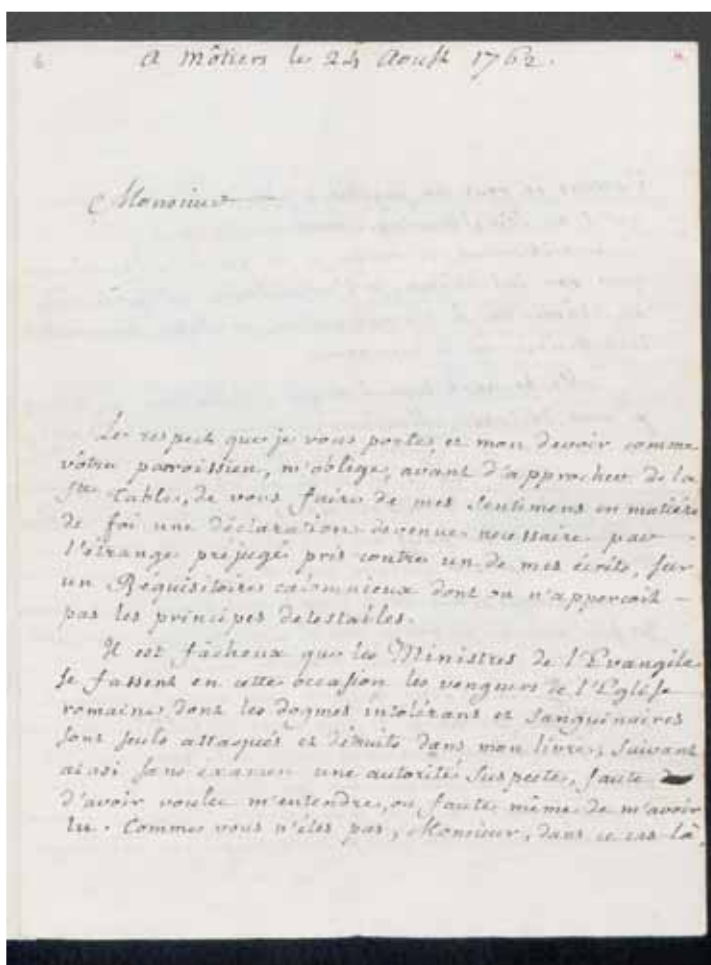 A Môtiers le 24 Aoust 1762.
Monsieur
Le respect que je vous porte, et mon devoir comme
vôtre paroissien, m'oblige, avant d'approcher de la
Ste. Table, de vous faire de mes sentimens en matiére
de foi une déclaration devenue necessaire par
l'étrange préjugé pris contre un de mes écrits, sur
un Requisitoire calomnieux dont on n'apperçoit
pas les principes detestables.
Il est fâcheux que les Ministres de l'Evangile
se fassent en cette occasion les vengeurs de l'Eglise
romaine, dont les dogmes intolérans et sanguinaires
sont seuls attaqués et détruits dans mon livre, suivant
ainsi sans éxamen une autorité suspecte, faute
d'avoir voulu m'entendre, ou faute même de m'avoir
lu. Comme vous n'étes pas, Monsieur, dans ce cas là,